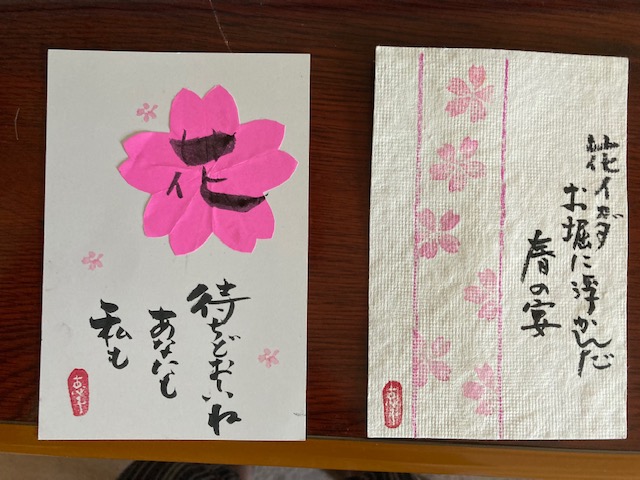 花
待ちどおしいね
あなたも
私も
花イカダ
お堀に浮かんだ
春の宴